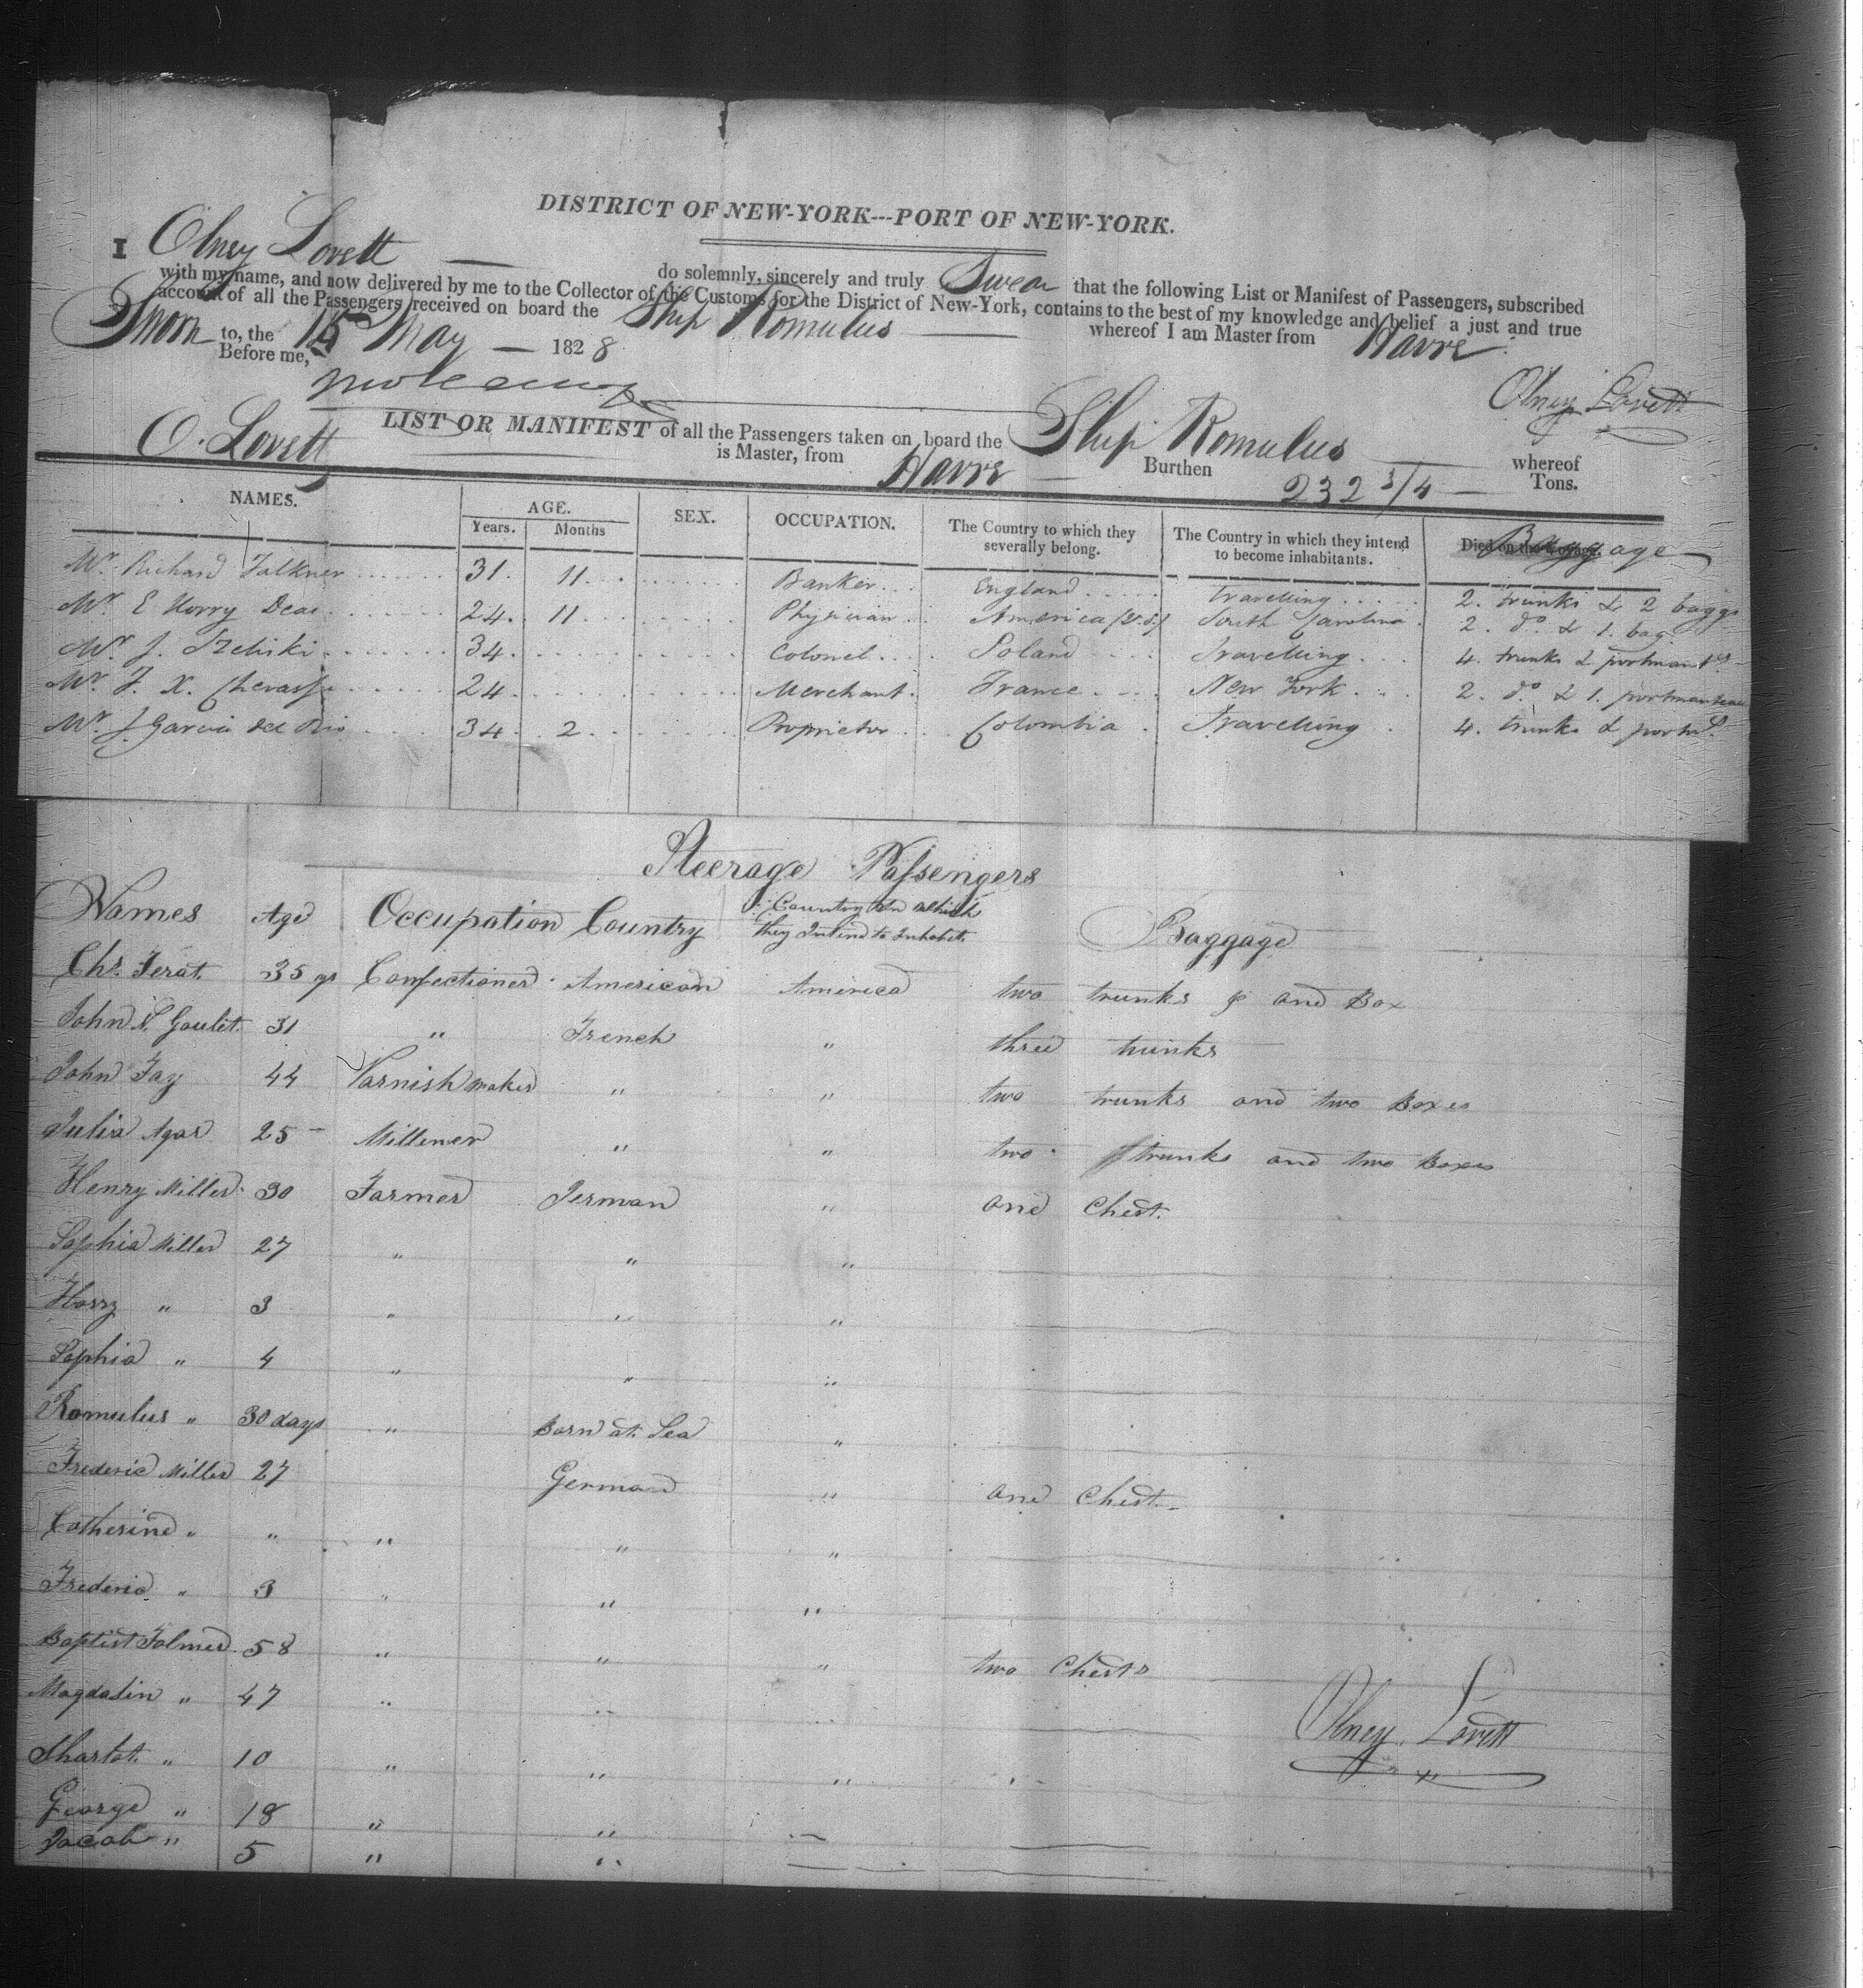 DISTRICT OF NEW-YORK---PORT OF NEW-YORK.
I Olney Lovett do solemnly, sincerely and truly Swear that the following List or Manifest of Passengers, subscribed
with my name, and now delivered by me to the Collector of the Customs for the District of New-York, contains to the best of my knowledge and belief a just and true
account of all the Passengers received on board the Ship Romulus whereof I am Master from Havre
Sworn to, the 15 May 1828
Before me,
Olney Lovett
LIST OR MANIFEST of all the Passengers taken on board the Ship Romulus whereof
O. Lovett is Master, from Havre Burthen 232 3/4 Tons.
NAMES. AGE. Years. Months SEX. OCCUPATION. The Country to which they severally belong. The Country in which they intend to become inhabitants. Died on the Voyage. Baggage
Mr. Richard Falkner 31. 11. Banker England travelling 2. trunks & 2 baggs
Mr. E Horry Deas 24. 11 Physician America (U.S.) South Carolina 2. do & 1. bag
Mr. J. 34. Colonel Poland Travelling 4. trunks &
Mr. F. X. 24 Merchant France New York 2. do & 1. portmanteau
Mr. J. Garcia del Rio 34. 2 Proprietor Colombia Travelling 4. trunks &
Steerage Passengers
Names Age Occupation Country Country in which they Intend to Inhabit Baggage
Chs. Ferat. 35 ys Confectioner American America two trunks and Box
John N. Goulet. 31 " French " three trunks
John Fay 44 Varnish maker " " two trunks and two Boxes
Julia Agar 25 Millener " " two trunks and two Boxes
Henry Miller 30 Farmer Jerman " one Chest.
Sophia Miller 27 " " "
Harry " 3 " " "
Sophia " 4 " " "
Romulus " 30 days " Born at Sea "
Frederic Miller 27 German " one Chest
Catherine " " " " "
Frederic " 3 " " "
Baptist Folmer 58 " " " two Chests
Magdalin " 47 " " "
Sharlot. " 10 " " "
Olney Lovett
George " 18 " "
Jacob " 5 " "